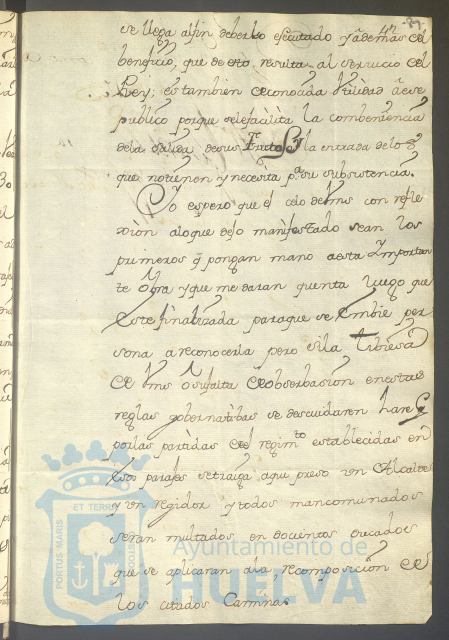 -89-
se llega al fin deberlo executado y ademas del
beneficio, que de esto, resulta al servicio del
Rey; es tambien conocida utilidad a ese
publico porque se le facilita la combeniencia
dela salida desus Frutos y la entrada delos q
que no tienen y necesita pa. su subsistencia.
Yo espero que el celo de Vms con refle
xsion aloque dejo manifestado sean los
primeros q pongan mano aesta Importan
te Obra y que me daran quenta luego que
este finalizada paraque se embie per
sona a reconocerla pero si la tibiesa
de Vms o su falta de observasion en estas
reglas gobernatibas se descuidaren hare q
por las partidas del regimto establecidas en
esos parajes se traiga aqui preso un Alcalde
y un regidor y todos mancomunados
seran multados en docientos ducados
que se aplicaran ala recomposicion de
los citados Caminos
PORTUS MARIS ET TERRÆ CUSTODIA
Ayuntamiento de
HUELVA